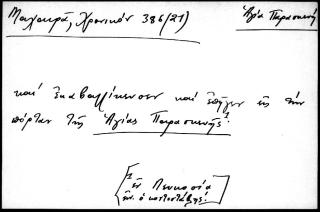 Μαχαιρά, Χρονικόν 386(21)
Ἁγία Παρασκευή
καί ἐκαβαλλίκευσεν καί ἐπῆγεν εἰς τήν
πόρταν τῆς Ἁγίας Παρασκευῆς¹.
[¹ ἐν Λευκοσίᾳ
ἐν.